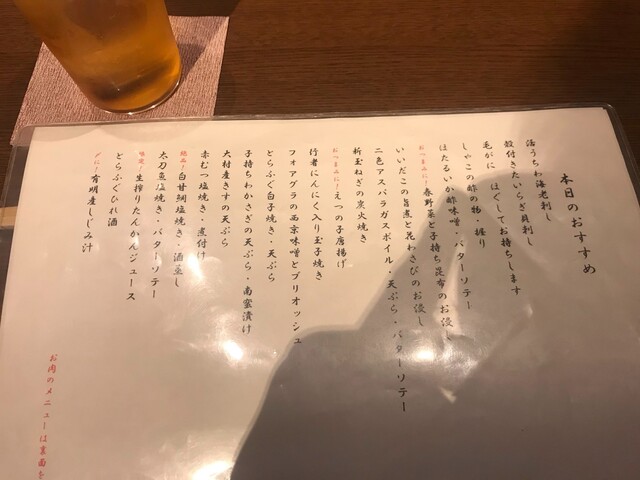 本日のおすすめ
活うちわ海老刺し
殻付きたいらぎ貝刺し
毛がに ほぐしてお持ちします
しゃこの酢の物・握り
ほたるいか酢味噌・バターソテー
おつまみに!春野菜と子持ち昆布のお浸し
いいだこの旨煮と花わさびのお浸し
二色アスパラガスボイル・天ぷら・バターソテー
新玉ねぎの炭火焼き
おつまみに!えつの子唐揚げ
行者にんにく入り玉子焼き
フォアグラの西京味噌とブリオッシュ
とらふぐ白子焼き・天ぷら
子持ちわかさぎの天ぷら・南蛮漬け
大村産きすの天ぷら
赤むつ塩焼き・煮付け
絶品!白甘鯛塩焼き・酒蒸し
太刀魚塩焼き・バターソテー
味覚!生搾りたんかんジュース
とらふぐひれ酒
〆に!有明産しじみ汁
お肉のメニューは裏面を